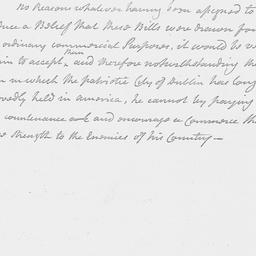 No Reason whatever having been assigned to
a Belief that these Bills were drawn for
ordinary commercial Purposes, it would be
to accept them, and therefore notwithstanding the
in which the patriotic City of Dublin has long
held in america, he cannot by paying
countenance and encourage a Commerce
strength to the Enemies of his Country—